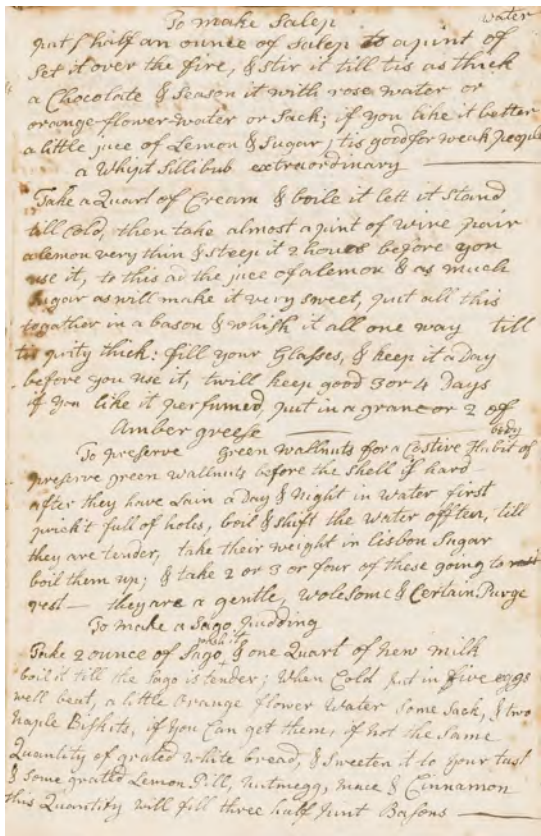 To make Salep
water
put half an ounce of Salep to a pint of
Set it over the fire, & Stir it till tis as thick
a Chocolate & Season it with rose water or
orange-flower-water or Sack; if you like it better
a little juce of Lemon & Sugar; tis good for weak people
a Whipt Sillibub extraordinary
Take a Quart of Cream & boile it lett it Stand
till Cold, then take almost a pint of wine pair
a lemon very thin & steep it 2 houers before you
use it, to this ad the juce of a lemon & as much
Sugar as will make it very sweet, put all this
togather in a bason & whish it all one way till
tis prity thick: fill your Glasses, & keep it a Day
before you use it, twill keep good 3 or 4 Days
if you like it perfumed, put in a grane or 2 off
Amber greese
body
To preserve green wallnuts for a Costive Habit of
preserve green wallnuts before the Shell is hard
after they have Lain a Day & Night in water first
prick't full of holes, boil & shift the water offten, till
they are tender, take their weight in lisbon Sugar
boil them up; & take 2 or 3 or four of these going to
rest — they are a gentle, wolesome & Certain Purge
To make a Sago pudding
wash it
Take 2 ounce of Sago & one Quart of new milk
boil it till the Sago is tender; When Cold put in five eggs
well beat, a little Orange flower Water Some Sack, & two
Naple Biskits, if you Can get them, if not the Same
Quantity of grated white bread, & Sweeten it to your tast
& Some grated Lemon Pill, nutmegg, mace & Cinnamon
this Quantity will fill three half Pint Basons